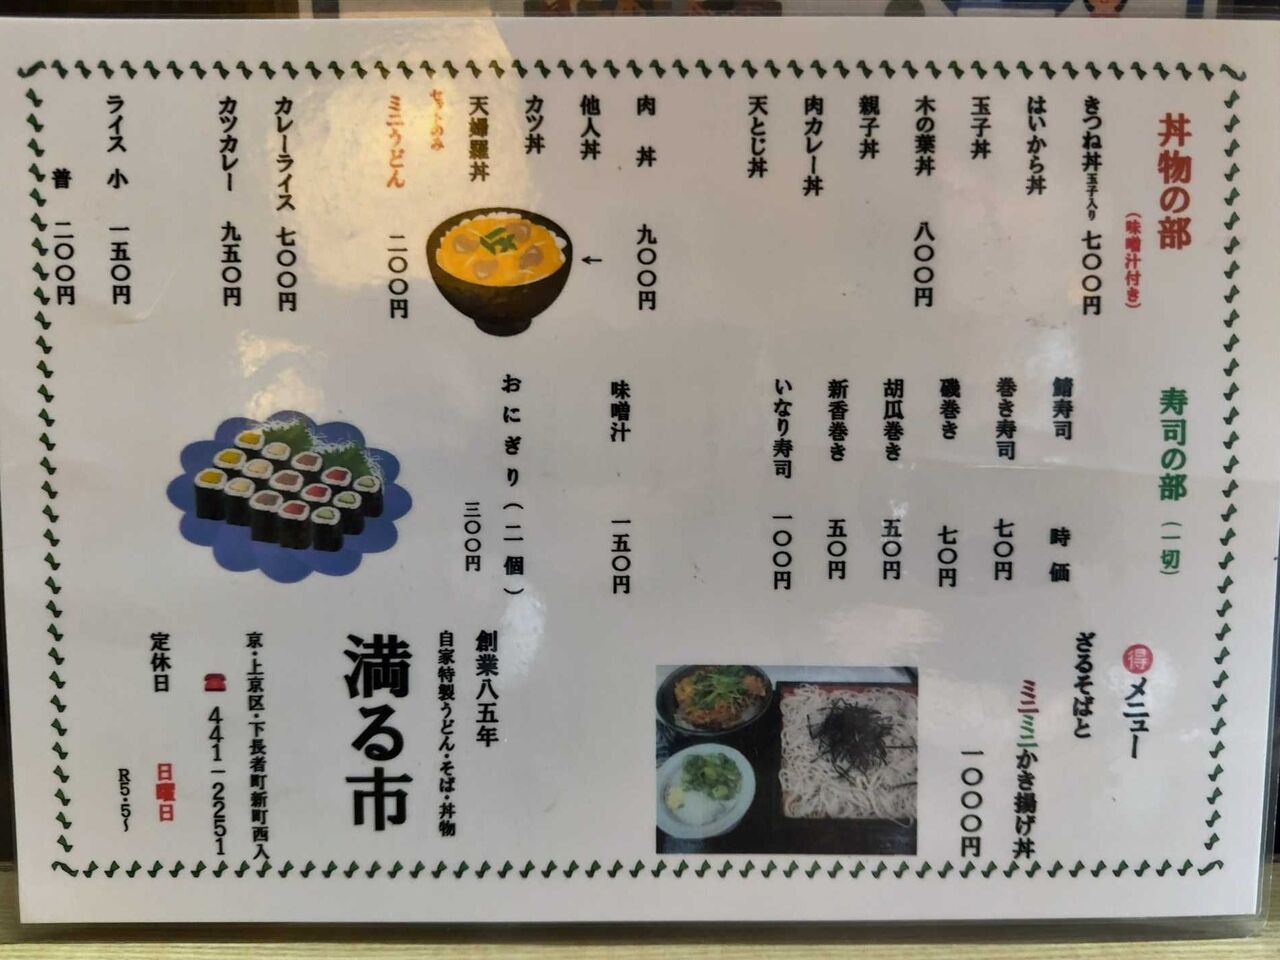 丼物の部
（味噌汁付き）
きつね丼玉子入り 七〇〇円
はいから丼
玉子丼
木の葉丼 八〇〇円
親子丼
肉カレー丼
天とじ丼
肉丼 九〇〇円
他人丼 ←
カツ丼
天婦羅丼
セットのみ
ミニうどん 二〇〇円
カレーライス 七〇〇円
カツカレー 九五〇円
ライス 小 一五〇円
普 二〇〇円
寿司の部（一切）
鯖寿司 時価
巻き寿司 七〇円
磯巻き 七〇円
胡瓜巻き 五〇円
新香巻き 五〇円
いなり寿司 一〇〇円
味噌汁 一五〇円
おにぎり（二個）
三〇〇円
得メニュー
ざるそばと
ミニミニかき揚げ丼
一〇〇〇円
創業八五年
自家特製うどん・そば・丼物
満る市
京・上京区・下長者町新町西入
☎ 441-2251
定休日 日曜日
R5・5〜